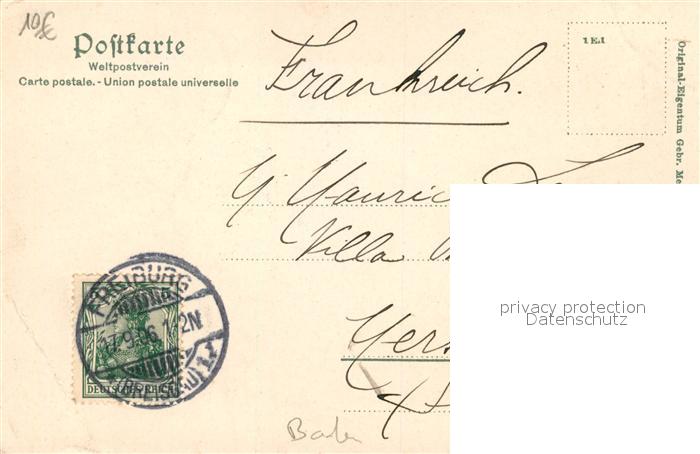 10€
Postkarte
Weltpostverein
Carte postale. - Union postale universelle
Frankreich.
1 E.I
Original-Eigentum Gebr. Me
Mauric
Villa
privacy protection
Datenschutz
FREIBURG
17.9.06 1-2N
(BREISGAU) 1
DEUTSCHES REICH
Baden